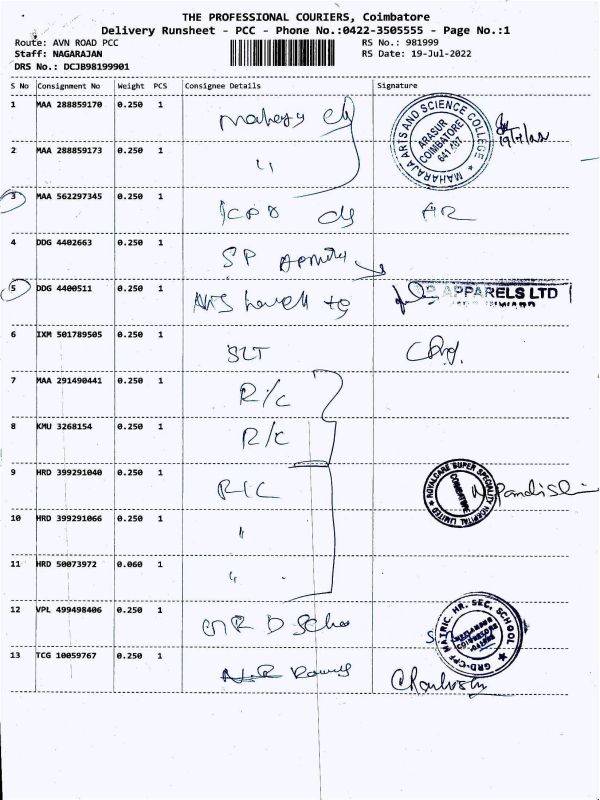 THE PROFESSIONAL COURIERS, Coimbatore
Delivery Runsheet - PCC - Phone No.:0422-3505555 - Page No.:1
Route: AVN ROAD PCC
RS No.: 981999
Staff: NAGARAJAN
RS Date: 19-Jul-2022
DRS No.: DCJB98199901
S No Consignment No Weight PCS Consignee Details Signature
1 MAA 288859170 0.250 1
MAHARAJA ARTS AND SCIENCE COLLEGE
ARASUR COIMBATORE 641 407
19/7/22
2 MAA 288859173 0.250 1 "
3 MAA 562297345 0.250 1
4 DDG 4402663 0.250 1 SP
5 DDG 4400511 0.250 1
APPARELS LTD
6 IXM 501789505 0.250 1
7 MAA 291490441 0.250 1 R/C
8 KMU 3268154 0.250 1 R/C
9 HRD 399291040 0.250 1 R/C
ROYALCARE SUPER SPECIALITY HOSPITAL LIMITED
COIMBATORE
10 HRD 399291066 0.250 1 "
11 HRD 50073972 0.060 1 "
12 VPL 499498406 0.250 1 GRD
GRD-CPF MATRIC. HR. SEC. SCHOOL
13 TCG 10059767 0.250 1